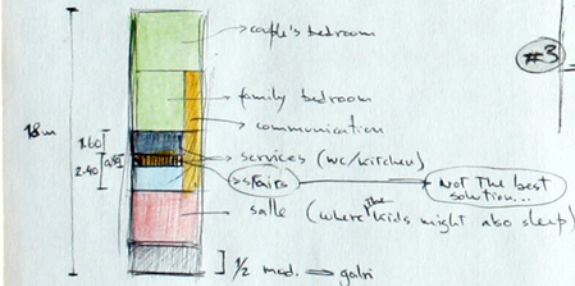 couple's bedroom
#3
family bedroom
communication
18m
1.60
services (wc/kitchen)
2.40
stairs
Not the best
solution...
salle (where the kids might also sleep)
1/2 mod. ⇒ galri